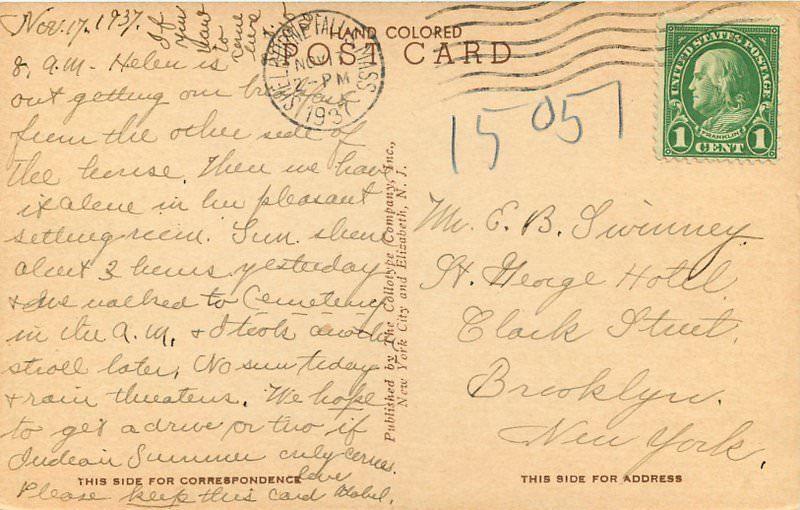 Nov. 17, 1937.
If
you
have
to
renew
8, A.M. Helen is
out getting our breakfast
from the other side of
the house. Then we have
it alone in her pleasant
setting room. Sun shone
about 2 hours yesterday
& we walked to Cemetery
in the A.M. & I took another
stroll later. No sun today
& rain threatens. We hope
to get a drive or two if
Indean Summer only comes.
love
Please keep this card Mabel.
THIS SIDE FOR CORRESPONDENCE
HAND COLORED
POST CARD
SHELBURNE FALLS MASS
NOV 17
2-PM
1937
UNITED STATES POSTAGE
FRANKLIN
1 CENT 1
15 05 1
Published by The Collotype Company, Inc.,
New York City and Elizabeth, N. J.
Mr. E. B. Swinney
St. George Hotel
Clark Street,
Brooklyn.
New York,
THIS SIDE FOR ADDRESS